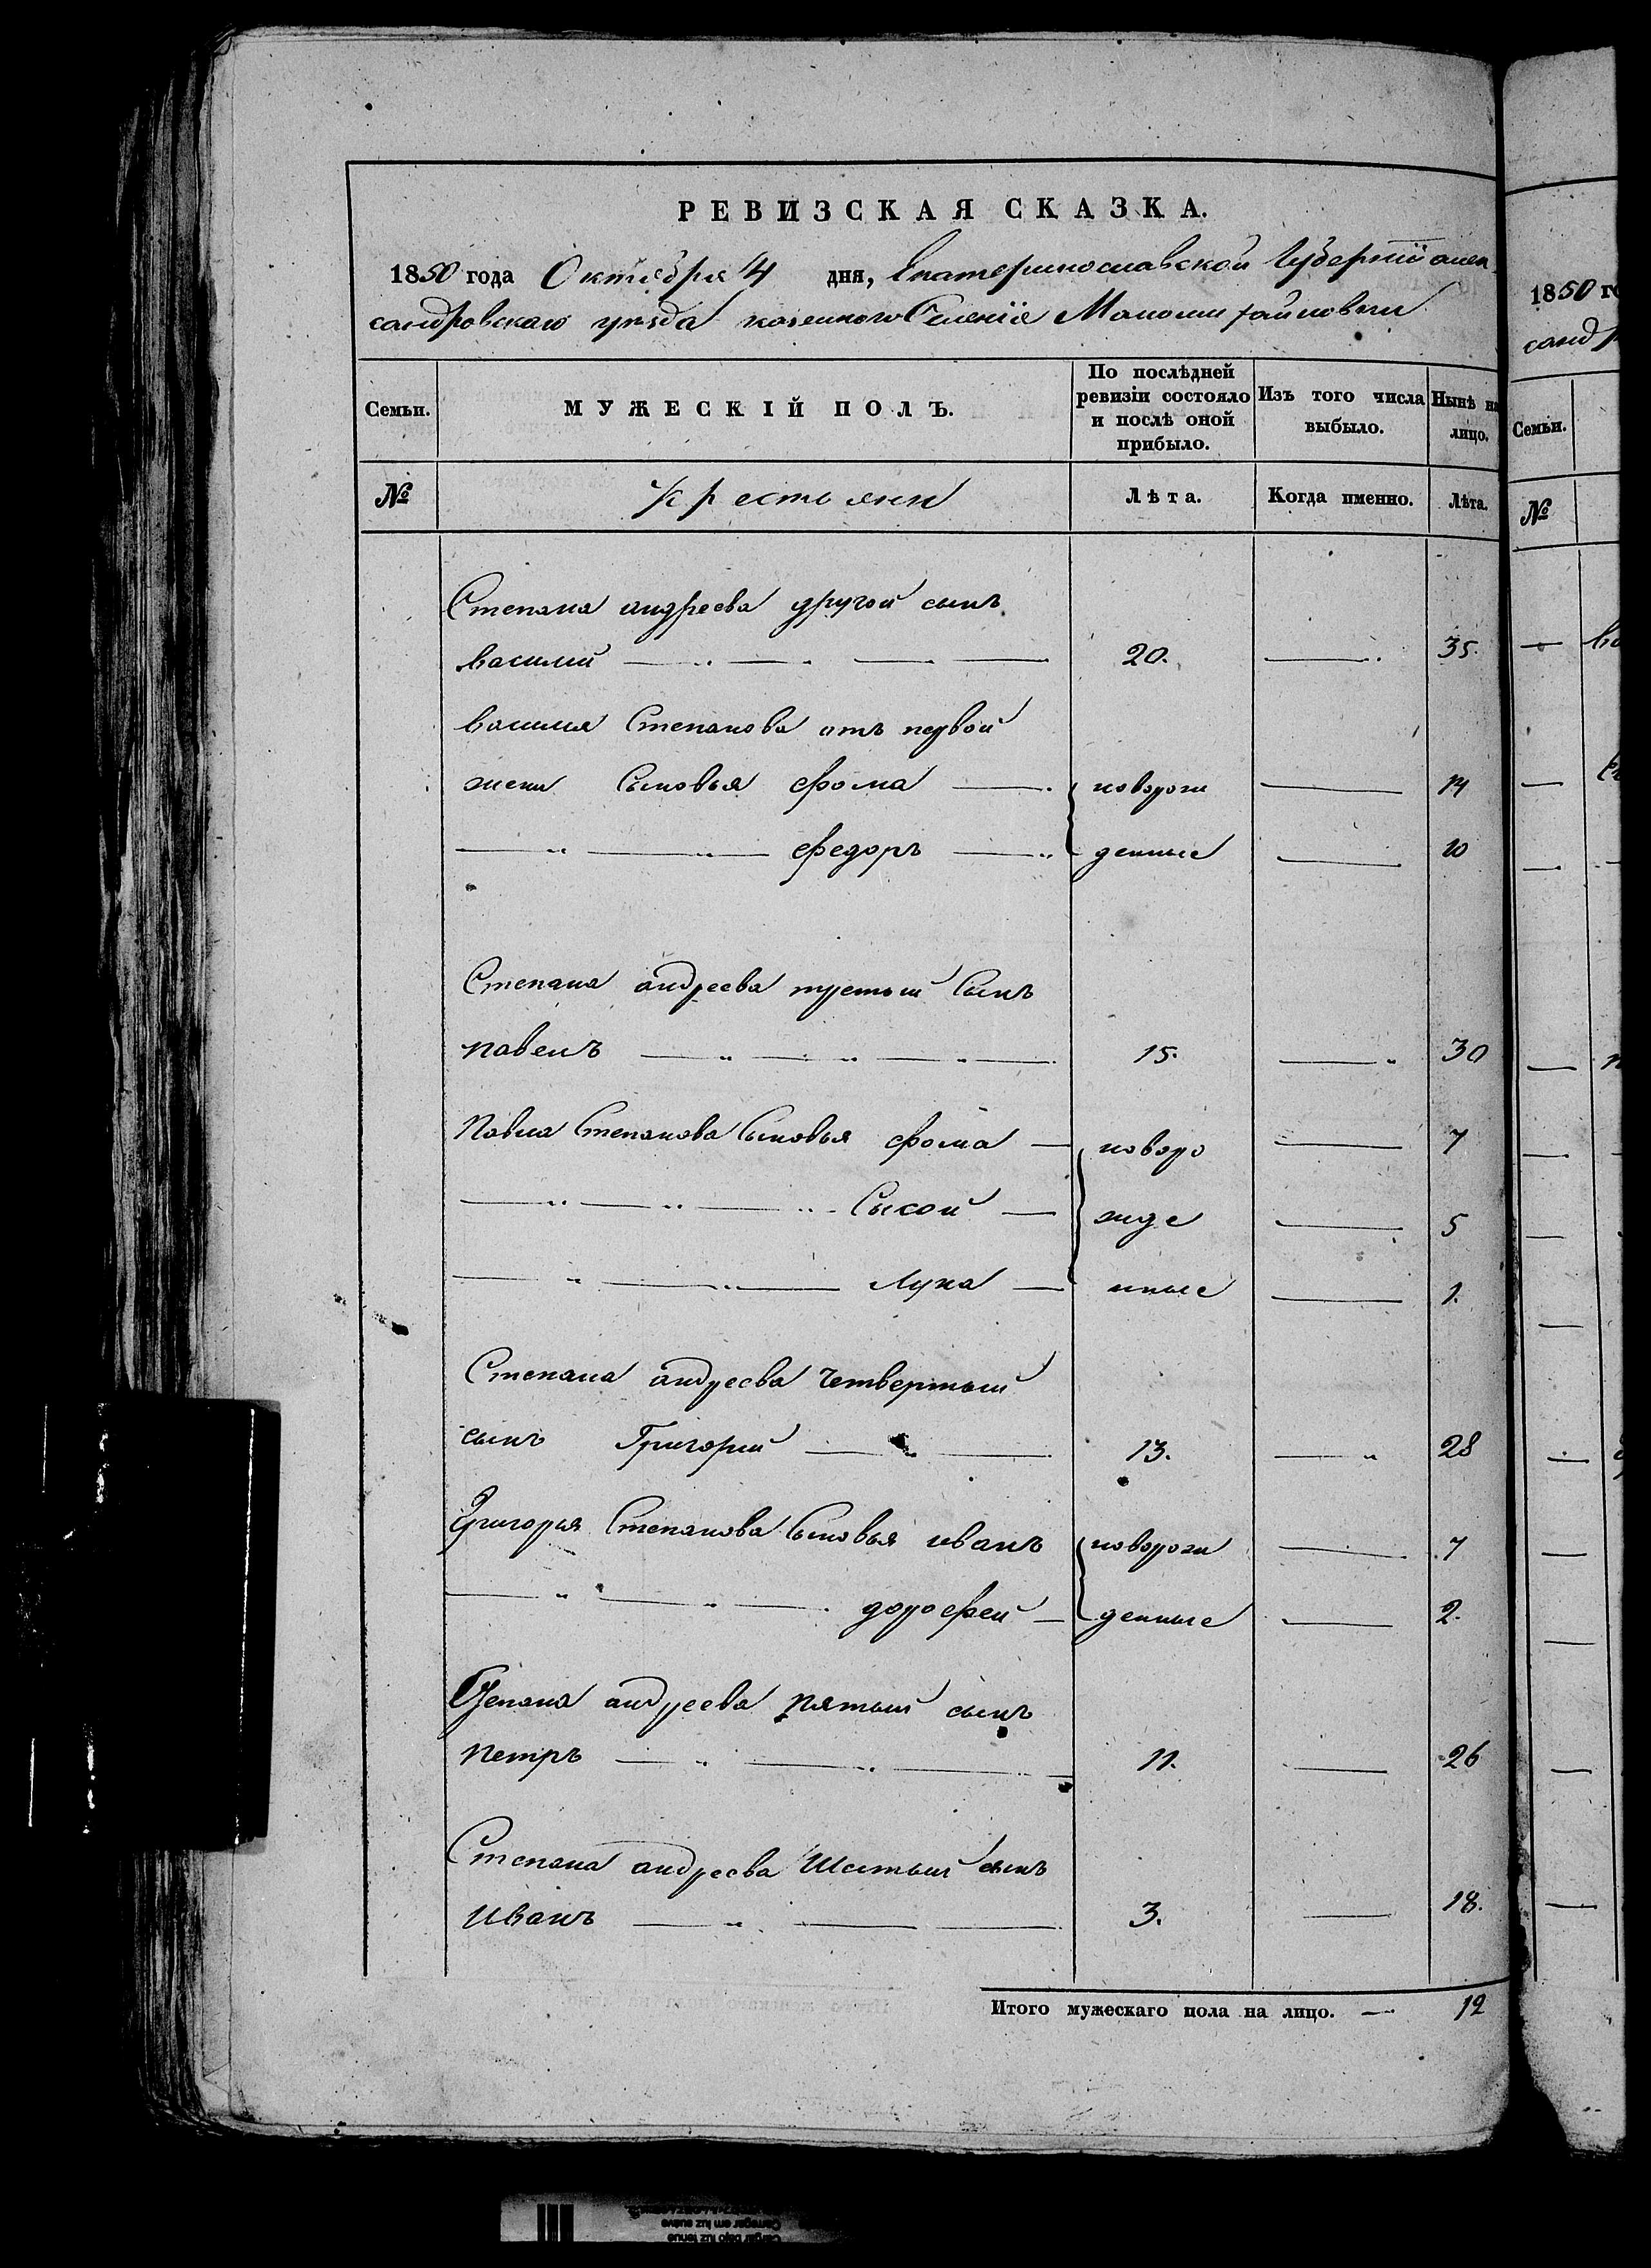 РЕВИЗСКАЯ СКАЗКА.
1850 года Октября 4 дня, Екатеринославской Губернiи алек
сандровскаго уезда казенного Селенiя
Семьи. МУЖЕСКIЙ ПОЛЪ. По послѣдней ревизiи состояло и послѣ оной прибыло. Изъ того числа выбыло. Нынѣ на лицо.
№ Крестьяни Лѣта. Когда именно. Лѣта.
Степана андреева другой сынъ
василий 20. 35.
василия Степанова отъ первой
жени Сыновья фома новорож 14
федоръ денные 10
Степана андреева третый Сынъ
павелъ 15. 30
Павла Степанова Сыновья фома новоро 7
Сысой жде 5
Лука нные 1.
Степана андреева Четвертый
сынъ Григорий 13. 28
Григорья Степанова Сыновья иванъ новорож 7
дорофей денные 2.
Степана андреева пятый сынъ
петръ 11. 26
Степана андреева Шестый сынъ
иванъ 3. 18.
Итого мужескаго пола на лицо. — 12
1850 го
санд
Семьи.
№